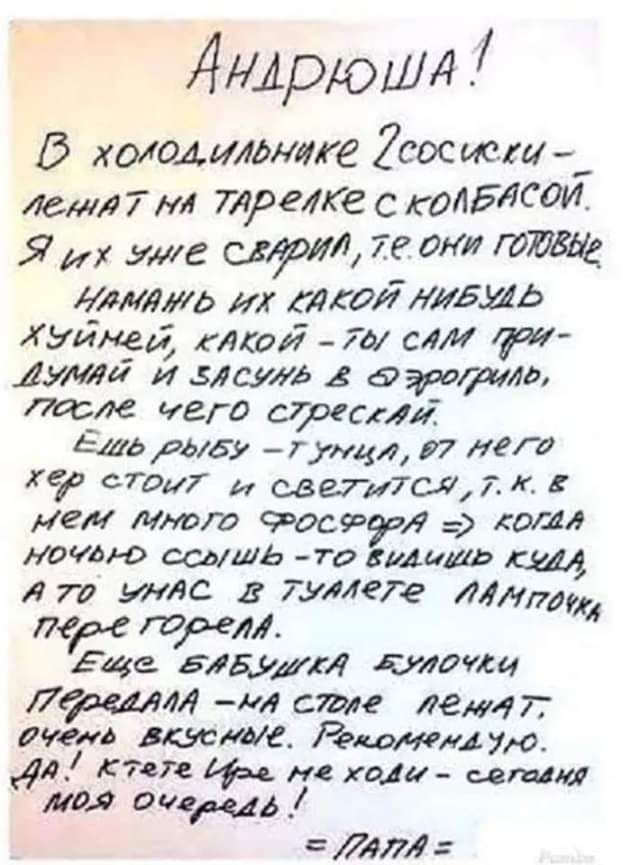 Андрюша!
В холодильнике 2 сосиски –
лежат на тарелке с колбасой.
Я их уже сварил, т.е. они готовые.
Намажь их какой нибудь
хуйней, какой – ты сам при-
думай и засунь в аэрогриль,
после чего стрескай.
Ешь рыбу – тунца, от него
хер стоит и светится, т.к. в
нем много фосфора => когда
ночью ссышь – то видишь куда,
а то у нас в туалете лампочка
перегорела.
Еще бабушка булочки
передала – на столе лежат,
очень вкусные. Рекомендую.
Да! к тете Ире не ходи – сегодня
моя очередь!
= ПАПА =